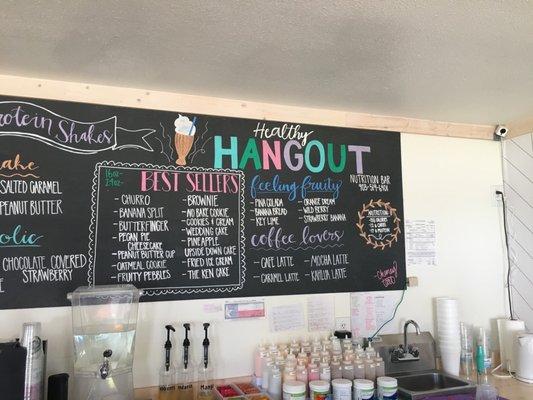 Protein Shakes
SALTED CARAMEL
PEANUT BUTTER
CHOCOLATE COVERED
STRAWBERRY
16oz-
24oz-
BEST SELLERS
- CHURRO
- BANANA SPLIT
- BUTTERFINGER
- PECAN PIE
CHEESECAKE
- PEANUT BUTTER CUP
- OATMEAL COOKIE
- FRUITY PEBBLES
- BROWNIE
- NO BAKE COOKIE
- COOKIES & CREAM
- WEDDING CAKE
- PINEAPPLE
UPSIDE DOWN CAKE
- FRIED ICE CREAM
- THE KEN CAKE
Healthy
HANGOUT
NUTRITION BAR
feeling fruity
- PINA COLADA
- BANANA BREAD
- KEY LIME
- ORANGE CREAM
- WILD BERRY
- STRAWBERRY BANANA
coffee lovers
- CAFE LATTE
- CARAMEL LATTE
- MOCHA LATTE
- KAHLUA LATTE